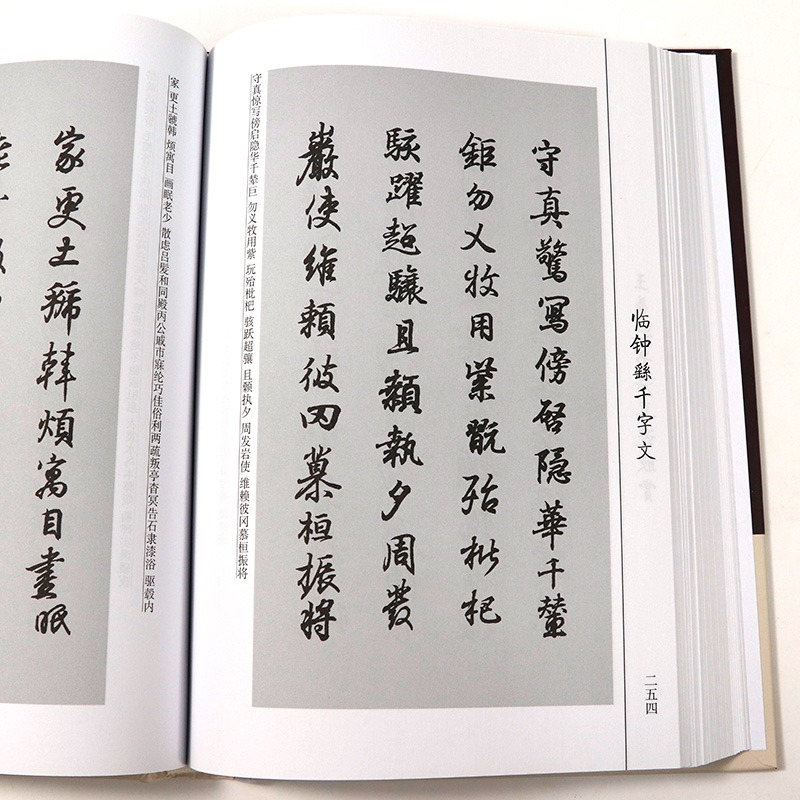 临钟繇千字文
二五四
守真驚寫傍啓隐華千輦
鉅勿乂牧用紫翫殆枇杷
駭躍超驤且顙執夕周發
巖使維賴彼冈慕桓振將
守真惊写傍启隐华千辇巨 勿义牧用紫 玩殆枇杷 骇跃超骧 且颡执夕 周发岩使 维赖彼冈慕桓振将
家 更土虢韩 烦寓目 画眠老少 散虑吕髮和同殿丙公戚市寐纶巧佳俗利两疏叛亭杳冥告石隶漆浴 驱毂内
家更土虢韓煩寓目畫眠